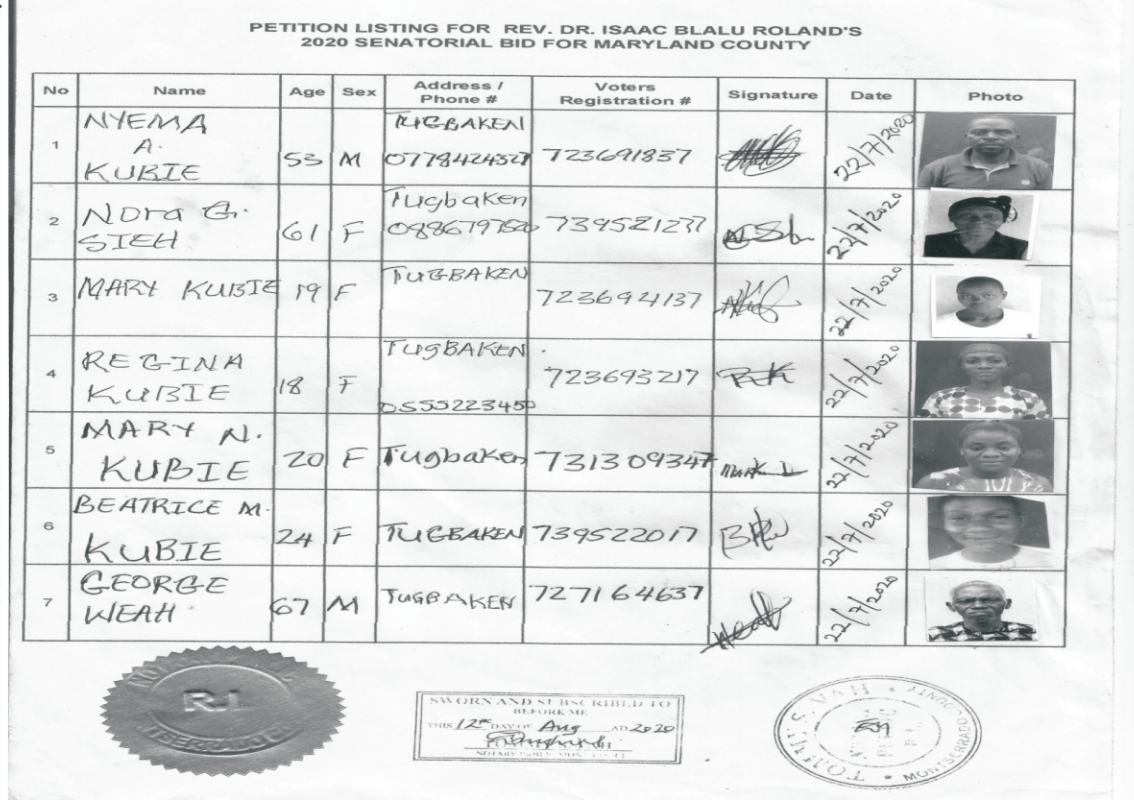 PETITION LISTING FOR REV. DR. ISAAC BLALU ROLAND'S
2020 SENATORIAL BID FOR MARYLAND COUNTY
No Name Age Sex Address / Phone # Voters Registration # Signature Date Photo
1 NYEMA A. KUBIE 53 M TUGBAKEN 0778424327 723691837 22/7/2020
2 Nora G. SIEH 61 F Tugbaken 739521237 22/7/2020
3 MARY KUBIE 19 F TUGBAKEN 723694137 22/7/2020
4 REGINA KUBIE 18 F TUgBAKEN 0555223450 723693217 RK 22/7/2020
5 MARY N. KUBIE 20 F Tugbaken 731309347 22/7/2020
6 BEATRICE M. KUBIE 24 F TUGBAKEN 739522017 22/7/2020
7 GEORGE WEAH 67 M TUGBAKEN 727164637 Weah 22/7/2020
SWORN AND SUBSCRIBED TO
BEFORE ME
THIS 12 DAY OF Aug AD 2020
MONTSERRADO COUNTY